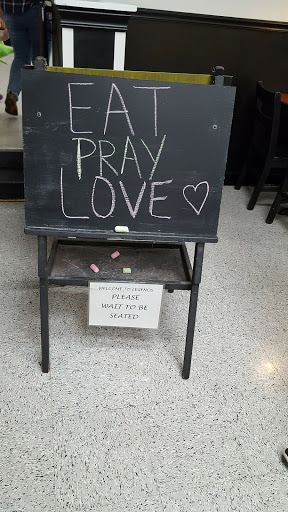 EAT
PRAY
LOVE
WELCOME TO LEGENDS
PLEASE
WAIT TO BE
SEATED